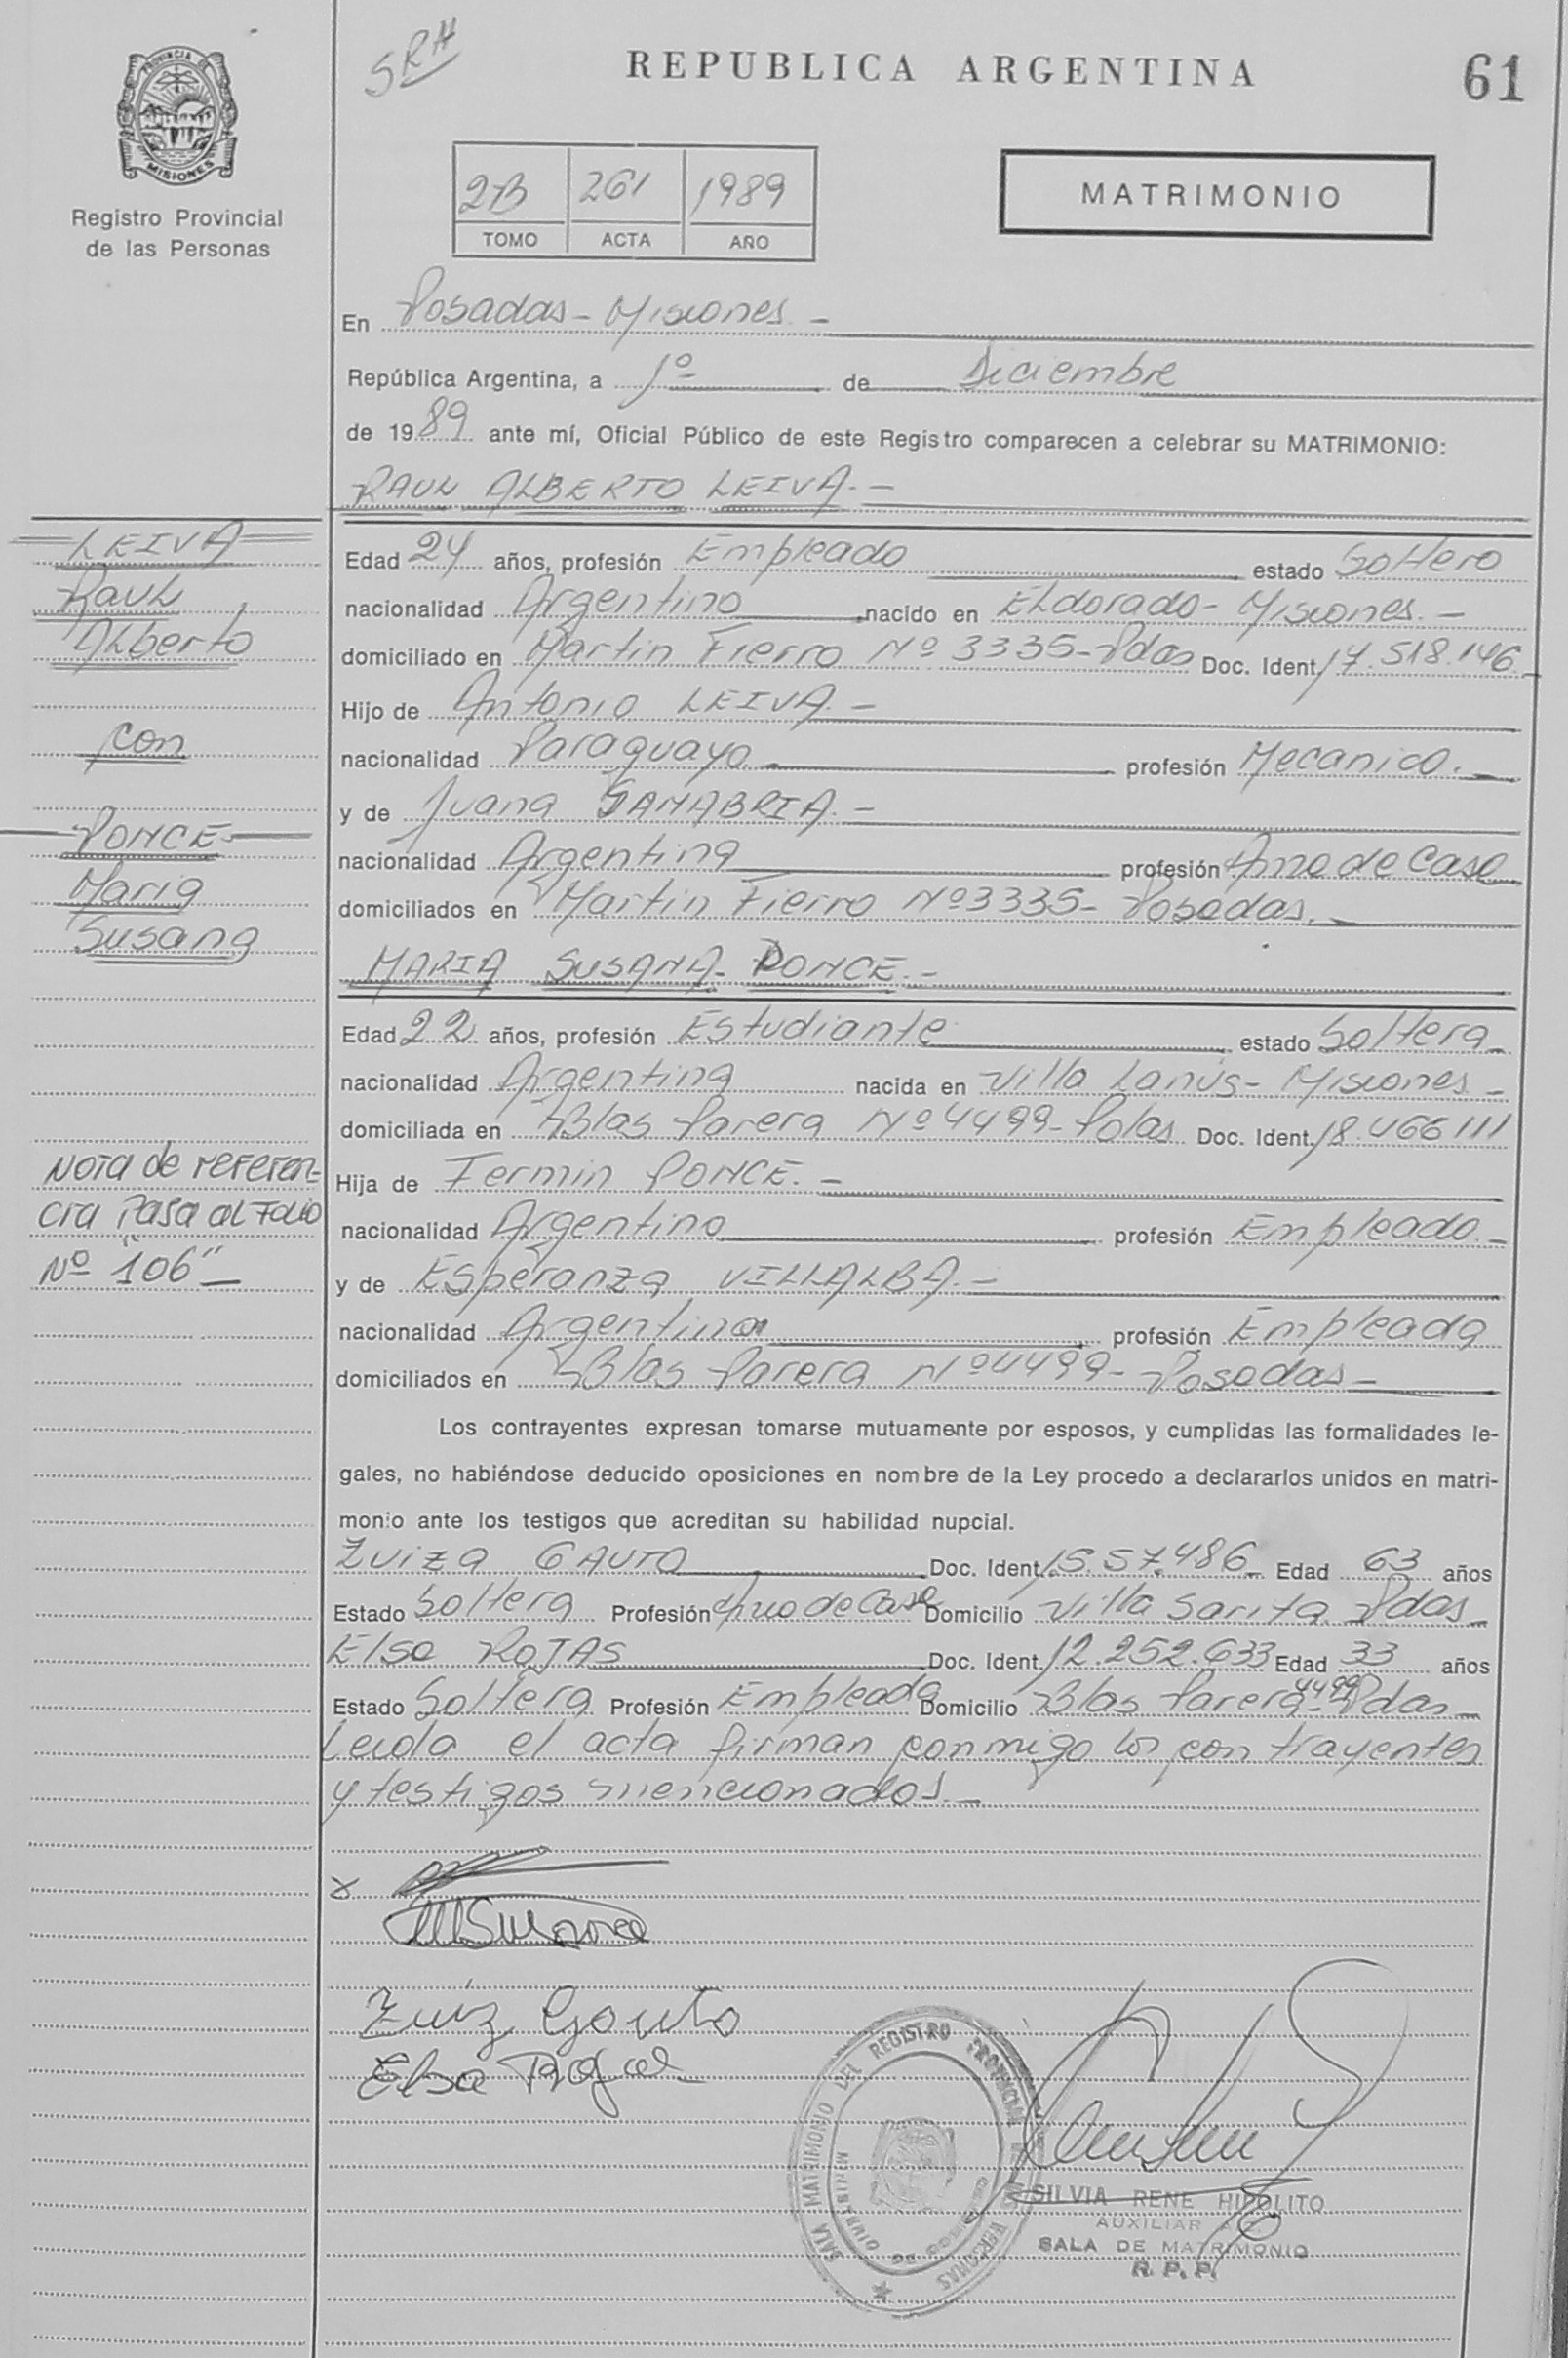 SRH
REPUBLICA ARGENTINA
61
PROVINCIA DE
MISIONES
Registro Provincial
de las Personas
2B 261 1989
TOMO ACTA AÑO
MATRIMONIO
En Posadas - Misiones -
República Argentina, a 1º de Diciembre
de 1989 ante mí, Oficial Público de este Registro comparecen a celebrar su MATRIMONIO:
RAUL ALBERTO LEIVA.-
LEIVA
Raul
Alberto
con
PONCE
Maria
Susana
Nota de referen-
cia Pasa al Folio
Nº "106"-
Edad 24 años, profesión Empleado estado Soltero
nacionalidad Argentino nacido en Eldorado - Misiones.-
domiciliado en Martin Fierro Nº 3335 - Pdas Doc. Ident. 17.518.146
Hijo de Antonio LEIVA.-
nacionalidad Paraguayo profesión Mecanico.-
y de Juana SANABRIA.-
nacionalidad Argentina profesión Ama de Casa
domiciliados en Martin Fierro Nº 3335 - Posadas.-
MARIA SUSANA PONCE.-
Edad 22 años, profesión Estudiante estado Soltera
nacionalidad Argentina nacida en Villa Lanús - Misiones -
domiciliada en Blas Parera Nº 4499 - Pdas Doc. Ident. 18.466111
Hija de Fermin PONCE.-
nacionalidad Argentino profesión Empleado.-
y de Esperanza VILLALBA.-
nacionalidad Argentina profesión Empleada
domiciliados en Blas Parera Nº 4499 - Posadas -
Los contrayentes expresan tomarse mutuamente por esposos, y cumplidas las formalidades le-
gales, no habiéndose deducido oposiciones en nombre de la Ley procedo a declararlos unidos en matri-
monio ante los testigos que acreditan su habilidad nupcial.
Zuiza GAUTO Doc. Ident. Edad 63 años
Estado Soltera Profesión Ama de Casa Domicilio Villa Sarita Pdas
Elsa ROJAS Doc. Ident. 12.252.633 Edad 33 años
Estado Soltera Profesión Empleada Domicilio Blas Parera 4499 - Pdas
Leida el acta firman conmigo los contrayentes
y testigos mencionados.-
x
Zuiz Gauto
Elsa Rojas
SALA MATRIMONIO DEL REGISTRO PROVINCIAL DE LAS PERSONAS
MINISTERIO DE GOBIERNO
SILVIA RENE HIPOLITO
AUXILIAR
SALA DE MATRIMONIO
R. P. P.